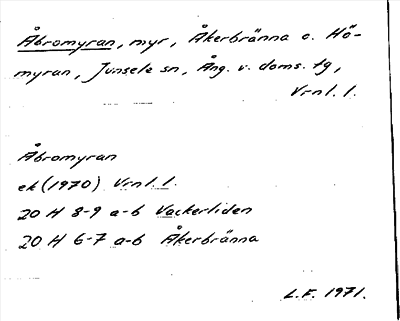 Åbromyran, myr, Åkerbränna o. Hö-
myran, Junsele sn, Ång. v. doms. tg,
Vrnl. l.
Åbromyran
ek (1970) Vrnl. l.
20 H 8-9 a-b Vackerliden
20 H 6-7 a-b Åkerbränna
L.F. 1971.